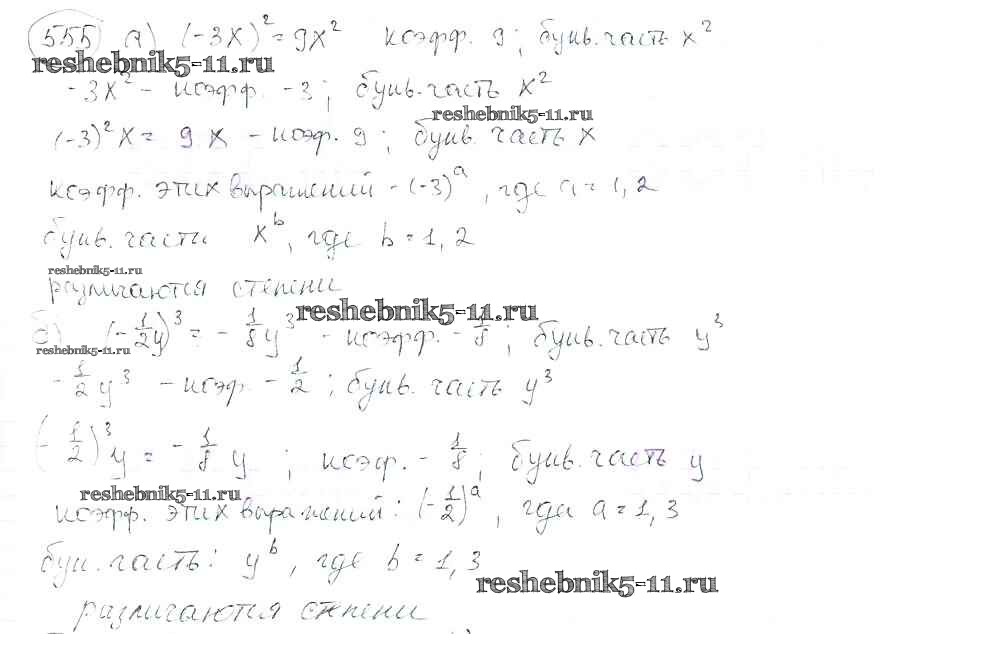 555 а) (-3x)² = 9x² коэфф. 9; букв. часть x²
reshebnik5-11.ru
-3x² - коэфф. -3; букв. часть x²
reshebnik5-11.ru
(-3)²x = 9x - коэф. 9; букв. часть x
коэфф. этих выражений - (-3)ᵃ, где a = 1, 2
букв. части xᵇ, где b = 1, 2
reshebnik5-11.ru
различаются степени
reshebnik5-11.ru
б) (-1/2y)³ = -1/8y³ - коэфф. -1/8; букв. часть y³
reshebnik5-11.ru
-1/2y³ - коэф. -1/2; букв. часть y³
(-1/2)³y = -1/8y; коэф. -1/8; букв. часть y
reshebnik5-11.ru
коэфф. этих выражений: (-1/2)ᵃ, где a = 1, 3
бук. часть: yᵇ, где b = 1, 3
reshebnik5-11.ru
различаются степени